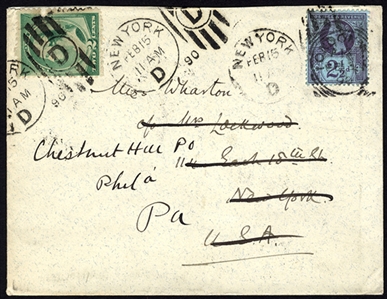 NEW YORK
FEB 15
11 AM
90
D
NEW YORK
FEB 15
90
D
AM
D
2½
Miss Wharton
c/o Mrs Lockwood
Chestnut Hill PO
114 East 18th St
Phil'a
New York
Pa
U.S.A.